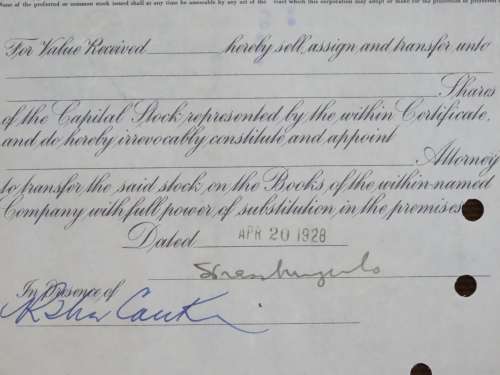 None of the preferred or common stock issued shall at any time be assessable by any act of the
tract which this corporation may adopt or make for the protection of preferred
For Value Received hereby sell, assign and transfer unto
Shares
of the Capital Stock represented by the within Certificate,
and do hereby irrevocably constitute and appoint
Attorney
to transfer the said stock on the Books of the within-named
Company with full power of substitution in the premises.
Dated APR 20 1928
In Presence of